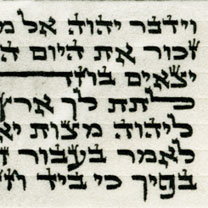 וידבר יהוה אל מ
זכור את היום ה
יצאים
לתת לך ארץ
ליהוה מצות יא
לאמר בעבור ז
בפיך כי ביד חז